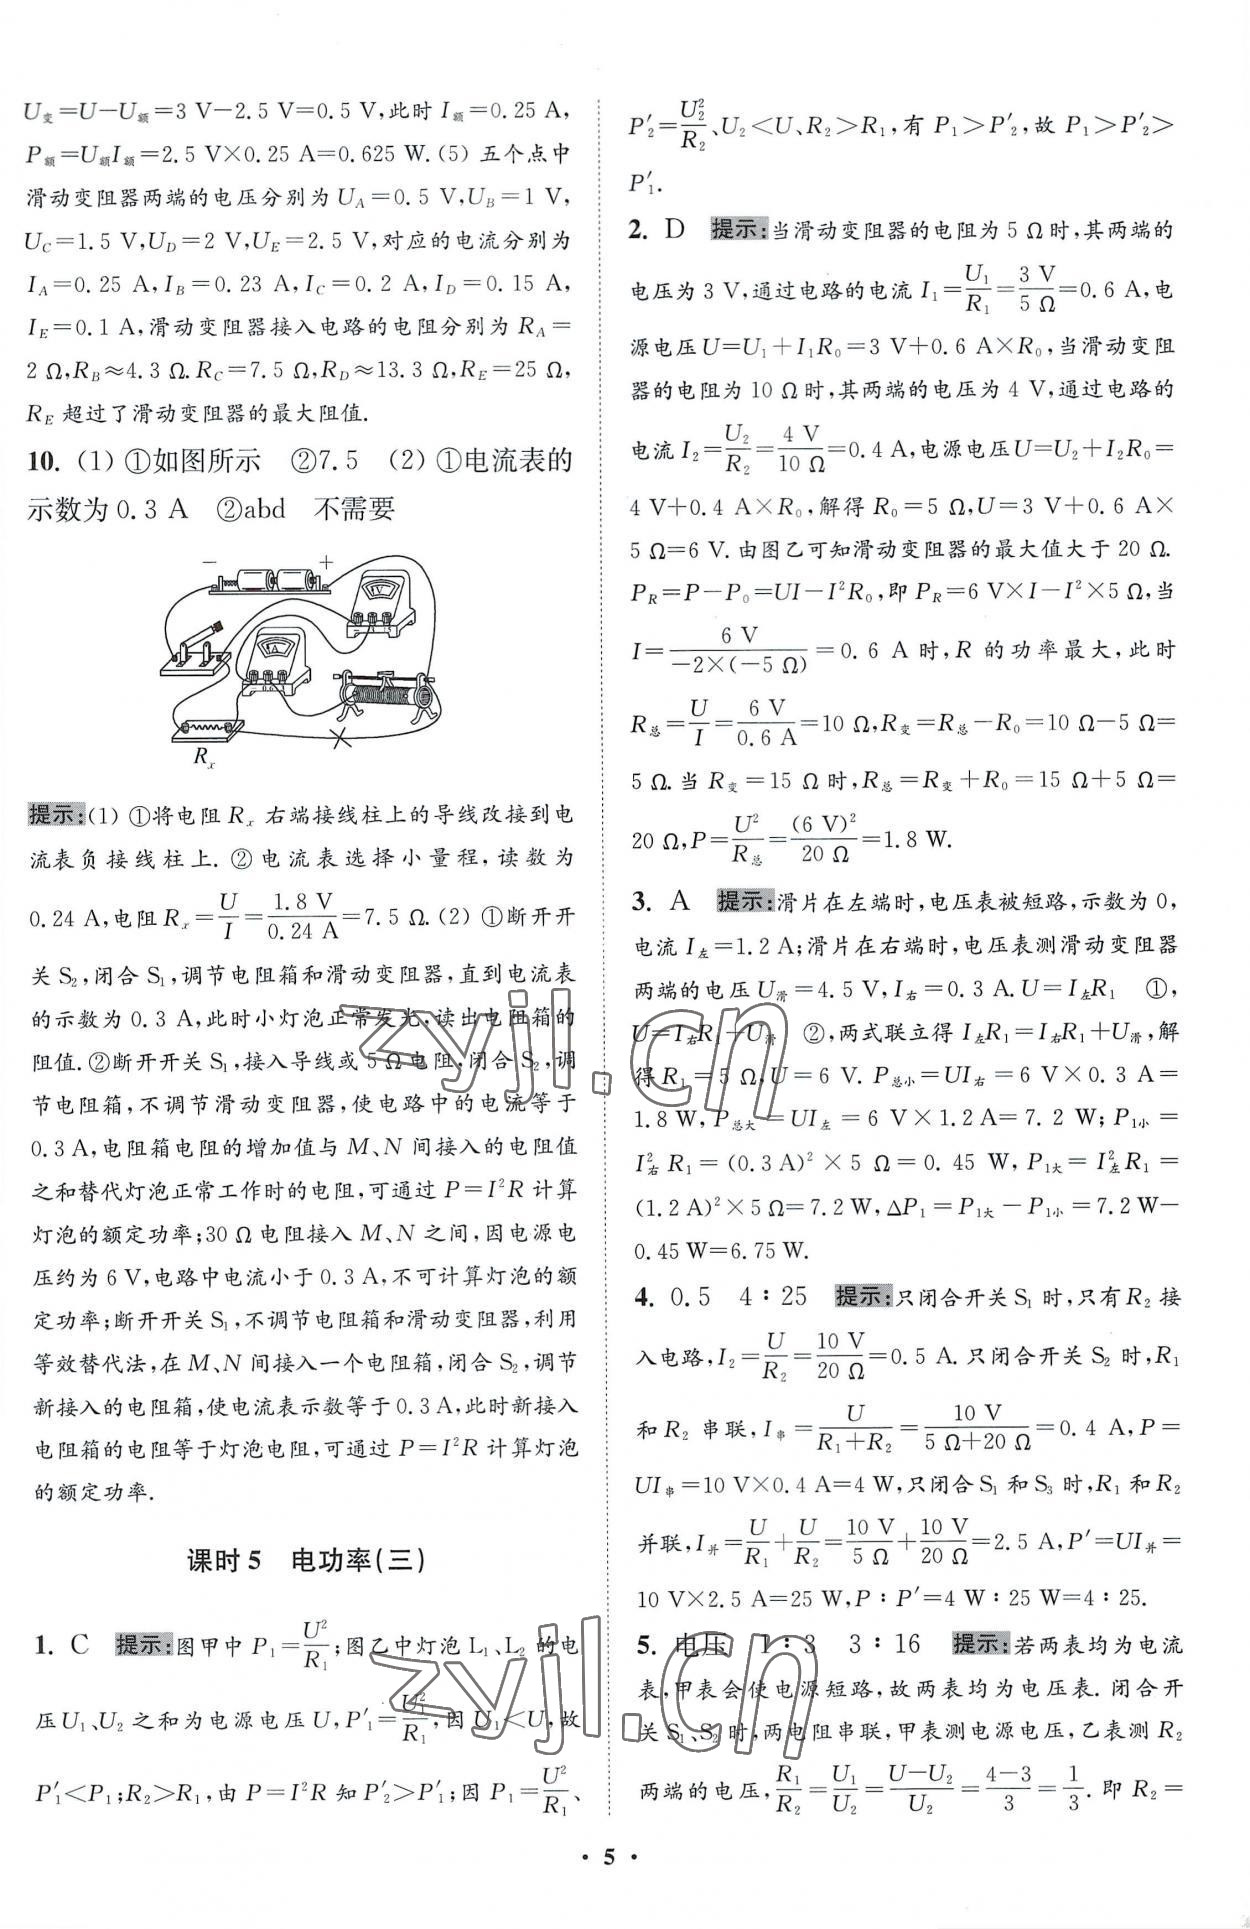 U变=U-U额=3 V-2.5 V=0.5 V,此时 I额=0.25 A,
P额=U额I额=2.5 V×0.25 A=0.625 W.(5) 五个点中
滑动变阻器两端的电压分别为 U_A=0.5 V,U_B=1 V,
U_C=1.5 V,U_D=2 V,U_E=2.5 V,对应的电流分别为
I_A=0.25 A,I_B=0.23 A,I_C=0.2 A,I_D=0.15 A,
I_E=0.1 A,滑动变阻器接入电路的电阻分别为 R_A=
2 Ω,R_B≈4.3 Ω.R_C=7.5 Ω,R_D≈13.3 Ω,R_E=25 Ω,
R_E 超过了滑动变阻器的最大阻值.
10. (1) ①如图所示 ②7.5 (2) ①电流表的
示数为 0.3 A ②abd 不需要
− +
V
A
Rₓ
提示:(1) ①将电阻 Rₓ 右端接线柱上的导线改接到电
流表负接线柱上. ②电流表选择小量程,读数为
0.24 A,电阻 Rₓ=U/I=1.8 V/0.24 A=7.5 Ω.(2) ①断开开
关 S₂,闭合 S₁,调节电阻箱和滑动变阻器,直到电流表
的示数为 0.3 A,此时小灯泡正常发光,读出电阻箱的
阻值.②断开开关 S₁,接入导线或 5 Ω 电阻,闭合 S₂,调
节电阻箱,不调节滑动变阻器,使电路中的电流等于
0.3 A,电阻箱电阻的增加值与 M、N 间接入的电阻值
之和替代灯泡正常工作时的电阻,可通过 P=I²R 计算
灯泡的额定功率;30 Ω 电阻接入 M、N 之间,因电源电
压约为 6 V,电路中电流小于 0.3 A,不可计算灯泡的额
定功率;断开开关 S₁,不调节电阻箱和滑动变阻器,利用
等效替代法,在 M、N 间接入一个电阻箱,闭合 S₂,调节
新接入的电阻箱,使电流表示数等于 0.3 A,此时新接入
电阻箱的电阻等于灯泡电阻,可通过 P=I²R 计算灯泡
的额定功率.
课时 5 电功率(三)
1. C 提示:图甲中 P₁=U²/R₁;图乙中灯泡 L₁、L₂ 的电
压 U₁、U₂ 之和为电源电压 U,P′₁=U₁²/R₁,因 U₁<U,故
P′₁<P₁;R₂>R₁,由 P=I²R 知 P′₂>P′₁;因 P₁=U²/R₁、
P′₂=U₂²/R₂、U₂<U、R₂>R₁,有 P₁>P′₂,故 P₁>P′₂>
P′₁.
2. D 提示:当滑动变阻器的电阻为 5 Ω 时,其两端的
电压为 3 V,通过电路的电流 I₁=U₁/R₁=3 V/5 Ω=0.6 A,电
源电压U=U₁+I₁R₀=3 V+0.6 A×R₀,当滑动变阻
器的电阻为 10 Ω 时,其两端的电压为 4 V,通过电路的
电流 I₂=U₂/R₂=4 V/10 Ω=0.4 A,电源电压 U=U₂+I₂R₀=
4 V+0.4 A×R₀,解得 R₀=5 Ω,U=3 V+0.6 A×
5 Ω=6 V.由图乙可知滑动变阻器的最大值大于 20 Ω.
P_R=P-P₀=UI-I²R₀,即 P_R=6 V×I-I²×5 Ω,当
I=6 V/-2×(-5 Ω)=0.6 A 时,R 的功率最大,此时
R总=U/I=6 V/0.6 A=10 Ω,R变=R总-R₀=10 Ω-5 Ω=
5 Ω.当 R变=15 Ω 时,R总=R变+R₀=15 Ω+5 Ω=
20 Ω,P=U²/R总=(6 V)²/20 Ω=1.8 W.
3. A 提示:滑片在左端时,电压表被短路,示数为 0,
电流 I左=1.2 A;滑片在右端时,电压表测滑动变阻器
两端的电压 U滑=4.5 V,I右=0.3 A.U=I左R₁ ①,
U=I右R₁+U滑 ②,两式联立得 I左R₁=I右R₁+U滑,解
得 R₁=5 Ω,U=6 V. P总小=UI右=6 V×0.3 A=
1.8 W,P总大=UI左=6 V×1.2 A=7.2 W;P₁小=
I右²R₁=(0.3 A)²×5 Ω=0.45 W,P₁大=I左²R₁=
(1.2 A)²×5 Ω=7.2 W,ΔP₁=P₁大-P₁小=7.2 W-
0.45 W=6.75 W.
4. 0.5 4∶25 提示:只闭合开关 S₁ 时,只有 R₂ 接
入电路,I₂=U/R₂=10 V/20 Ω=0.5 A.只闭合开关 S₂ 时,R₁
和 R₂ 串联,I串=U/R₁+R₂=10 V/5 Ω+20 Ω=0.4 A,P=
UI串=10 V×0.4 A=4 W,只闭合 S₁ 和 S₃ 时,R₁ 和 R₂
并联,I并=U/R₁+U/R₂=10 V/5 Ω+10 V/20 Ω=2.5 A,P′=UI并=
10 V×2.5 A=25 W,P∶P′=4 W∶25 W=4∶25.
5. 电压 1∶3 3∶16 提示:若两表均为电流
表,甲表会使电源短路,故两表均为电压表.闭合开
关 S₁、S₂ 时,两电阻串联,甲表测电源电压,乙表测 R₂
两端的电压,R₁/R₂=U₁/U₂=U-U₂/U₂=4-3/3=1/3.即 R₂=
· 5 ·
zyjl.cn
zyjl.cn